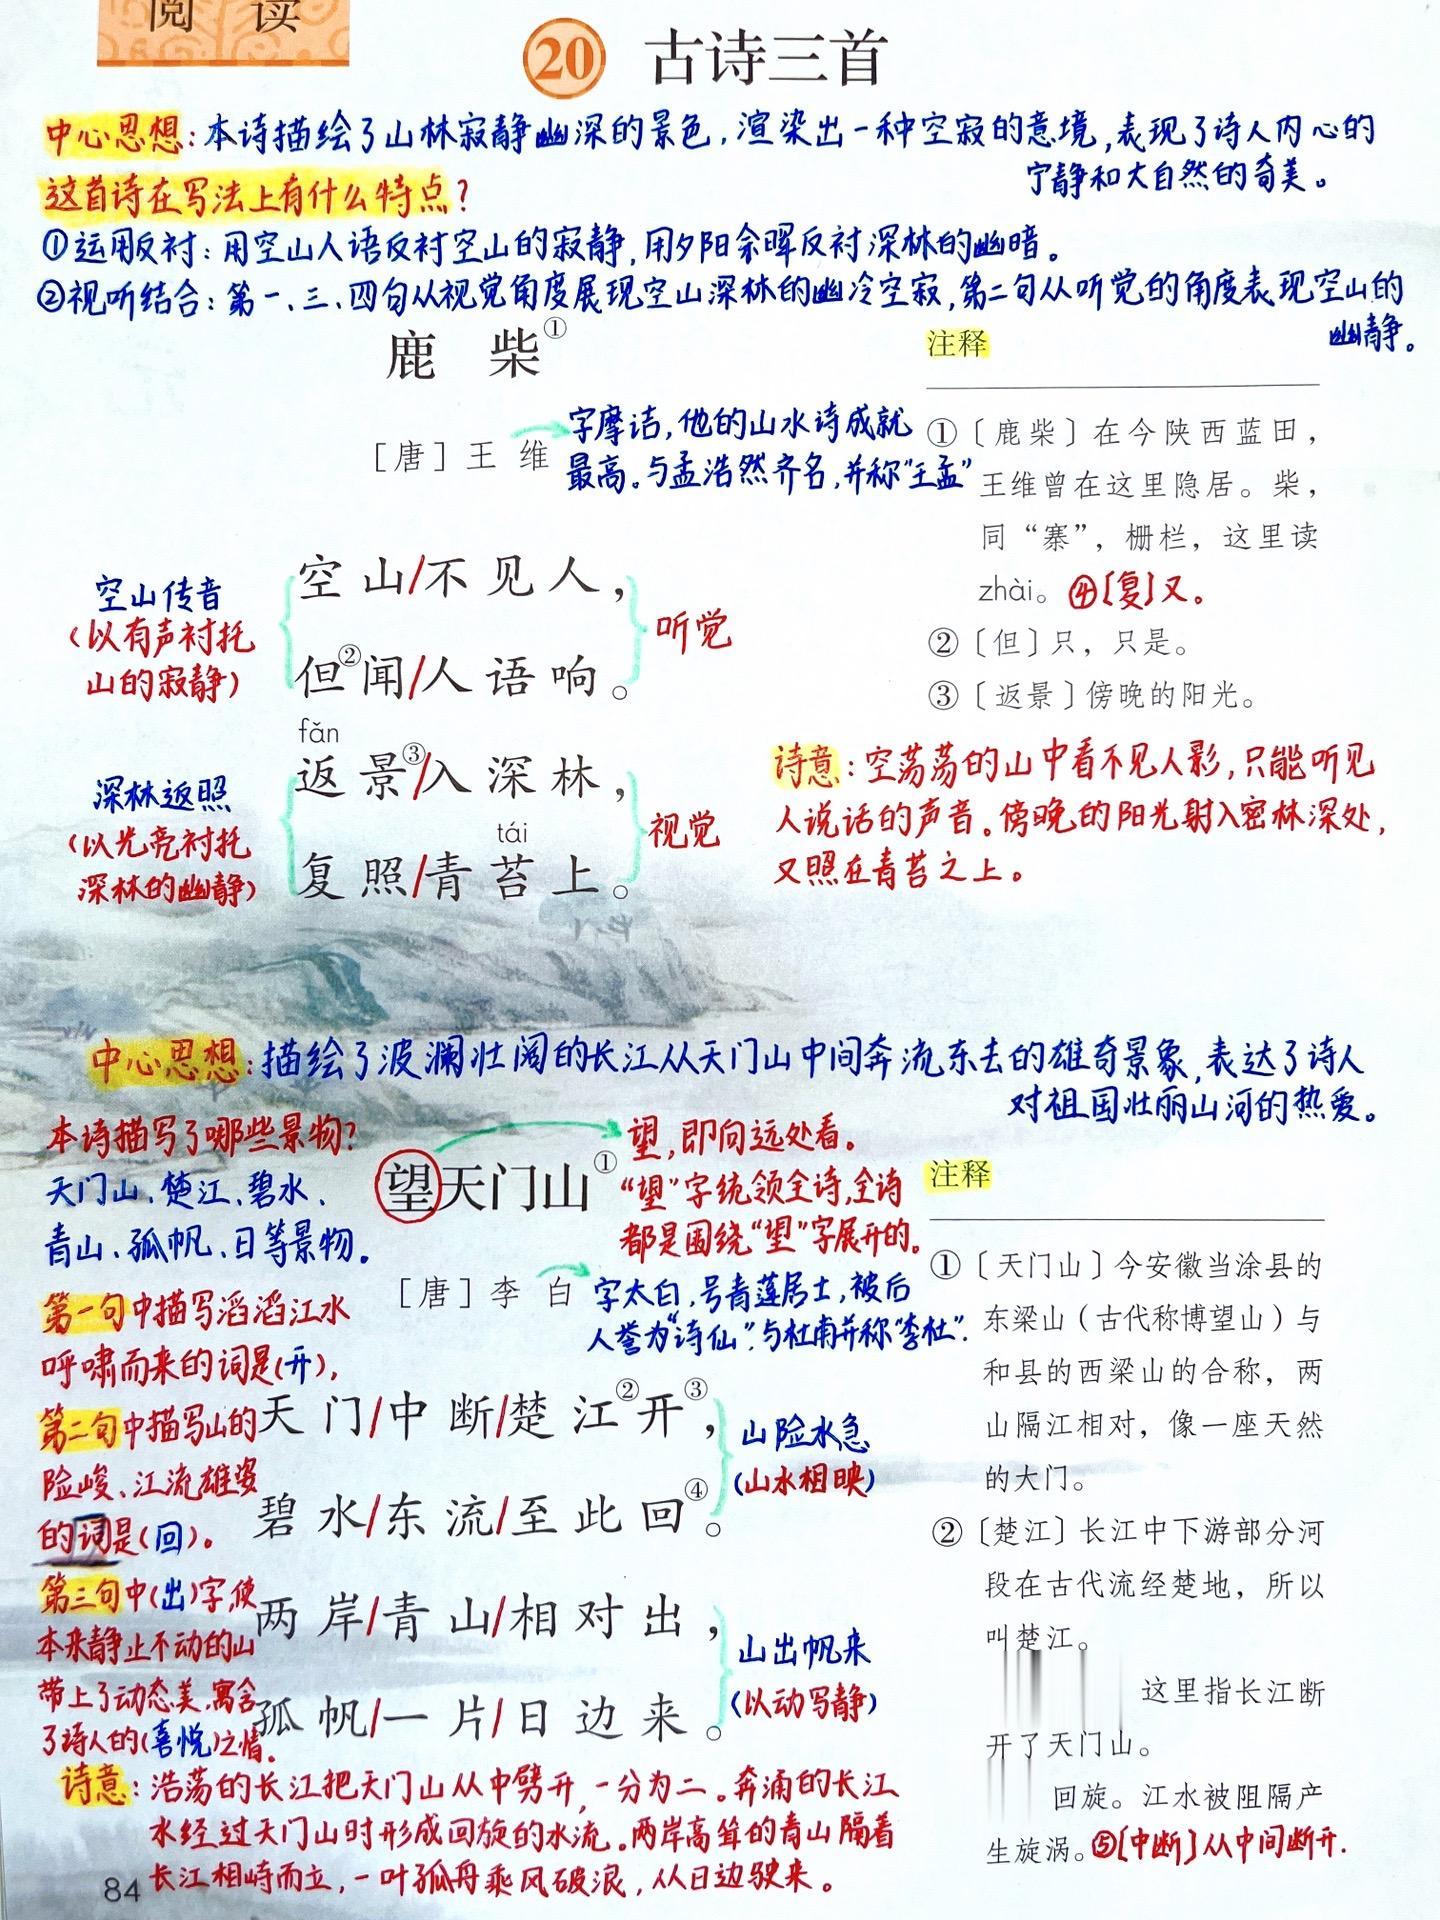 阅 读
20 古诗三首
中心思想：本诗描绘了山林寂静幽深的景色，渲染出一种空寂的意境，表现了诗人内心的
宁静和大自然的奇美。
这首诗在写法上有什么特点？
①运用反衬：用空山人语反衬空山的寂静，用夕阳余晖反衬深林的幽暗。
②视听结合：第一、三、四句从视觉角度展现空山深林的幽冷空寂，第二句从听觉的角度表现空山的
幽静。
鹿 柴①
[唐] 王 维
字摩诘，他的山水诗成就
最高。与孟浩然齐名，并称“王孟”
空山传音
(以有声衬托
山的寂静)
空 山/不 见 人，
但②闻/人 语 响。
听觉
深林返照
(以光亮衬托
深林的幽静)
fǎn
返 景③/入 深 林，
tái
复 照/青 苔 上。
视觉
注释
①〔鹿柴〕在今陕西蓝田，
王维曾在这里隐居。柴，
同“寨”，栅栏，这里读
zhài。④[复]又。
②〔但〕只，只是。
③〔返景〕傍晚的阳光。
诗意：空荡荡的山中看不见人影，只能听见
人说话的声音。傍晚的阳光射入密林深处，
又照在青苔之上。
中心思想：描绘了波澜壮阔的长江从天门山中间奔流东去的雄奇景象，表达了诗人
对祖国壮丽山河的热爱。
本诗描写了哪些景物？
天门山、楚江、碧水、
青山、孤帆、日等景物。
望天门山①
望，即向远处看。
“望”字统领全诗，全诗
都是围绕“望”字展开的。
[唐] 李 白
字太白，号青莲居士，被后
人誉为“诗仙”。与杜甫并称“李杜”.
第一句中描写滔滔江水
呼啸而来的词是(开)，
第二句中描写山的
险峻、江流雄姿
的词是(回)。
第三句中(出)字，使
本来静止不动的山
带上了动态美，寓含
了诗人的(喜悦)之情。
天 门/中 断/楚 江②开③，
碧 水/东 流/至 此 回④。
山险水急
(山水相映)
两 岸/青 山/相 对 出，
孤 帆/一 片/日 边 来。
山出帆来
(以动写静)
注释
①〔天门山〕今安徽当涂县的
东梁山（古代称博望山）与
和县的西梁山的合称，两
山隔江相对，像一座天然
的大门。
②〔楚江〕长江中下游部分河
段在古代流经楚地，所以
叫楚江。
这里指长江断
开了天门山。
回旋。江水被阻隔产
生旋涡。⑤[中断]从中间断开.
诗意：浩荡的长江把天门山从中劈开，一分为二。奔涌的长江
水经过天门山时形成回旋的水流。两岸高耸的青山隔着
长江相峙而立，一叶孤舟乘风破浪，从日边驶来。
84